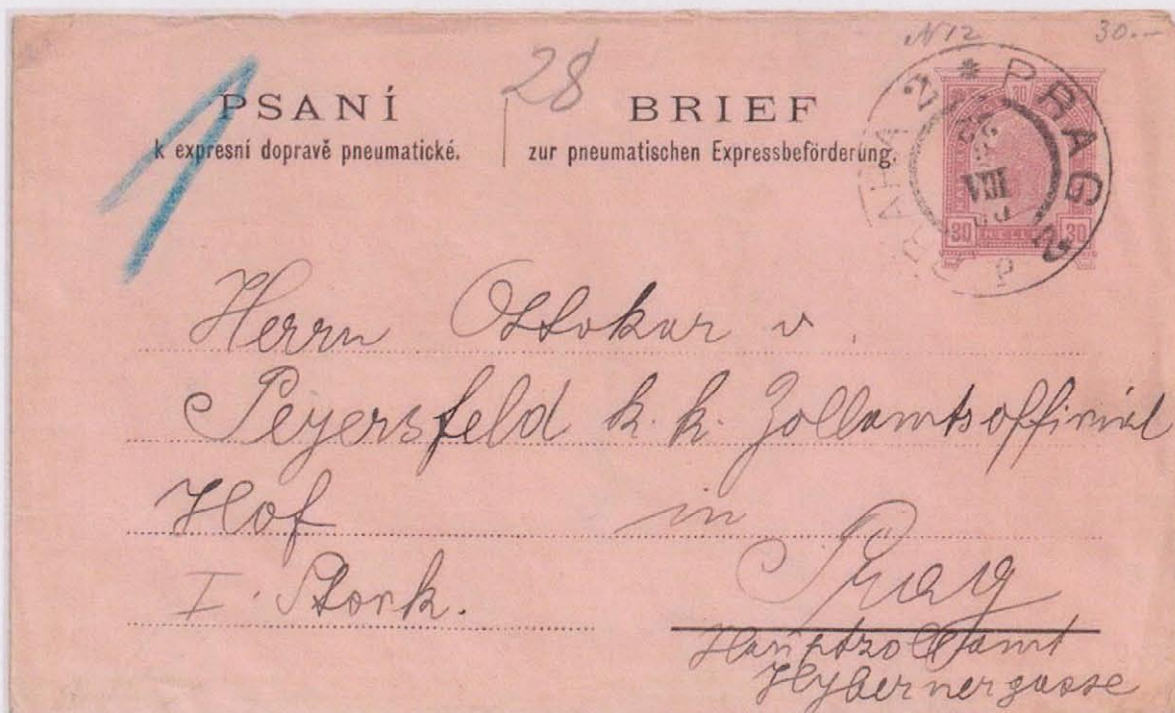 N12 30.–
28
1
PSANÍ
k expresní dopravě pneumatické.
BRIEF
zur pneumatischen Expressbeförderung.
PRAG 2
PRAHA 2
VIII
30
30 30
Herrn Ottokar v.
Peyersfeld k. k. Zollamtsoffizial
Hof in
I. Stock. Prag
Hauptzollamt
Hybernergasse